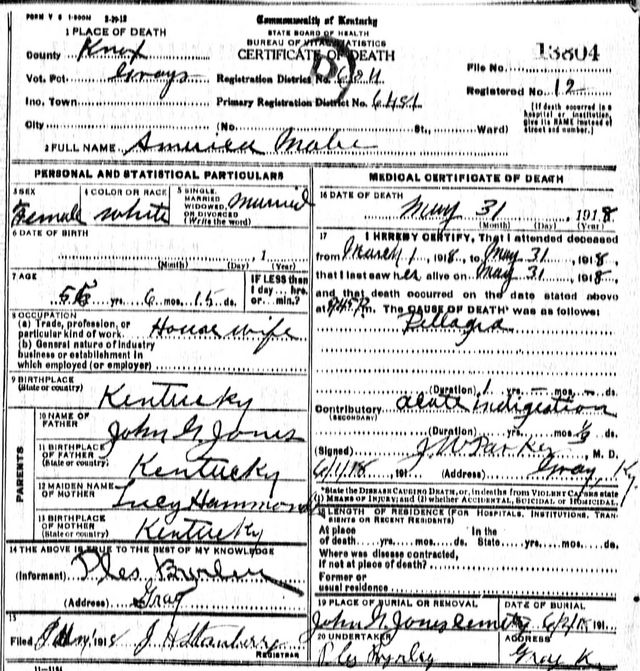 FORM V S 1-500M 2-19-18
Commonwealth of Kentucky
STATE BOARD OF HEALTH
BUREAU OF VITAL STATISTICS
CERTIFICATE OF DEATH
1 PLACE OF DEATH
County Knox
Vot. Pct. Grays Registration District No.
File No. 13804
Inc. Town Primary Registration District No. 6451
Registered No. 12
City (No. St., Ward)
[If death occurred in a hospital or institution, give its NAME instead of street and number.]
2 FULL NAME America Mabe
PERSONAL AND STATISTICAL PARTICULARS
3 SEX Female
4 COLOR OR RACE white
5 SINGLE, MARRIED WIDOWED OR DIVORCED (Write the word) Married
6 DATE OF BIRTH
(Month) (Day) (Year)
7 AGE
yrs. 6 mos. 15 ds.
IF LESS than 1 day... hrs. or min.?
8 OCCUPATION
(a) Trade, profession, or particular kind of work. House wife
(b) General nature of industry business or establishment in which employed (or employer)
9 BIRTHPLACE (State or country) Kentucky
PARENTS
10 NAME OF FATHER John G. Jones
11 BIRTHPLACE OF FATHER (State or country) Kentucky
12 MAIDEN NAME OF MOTHER Lucy Hammons
13 BIRTHPLACE OF MOTHER (State or country) Kentucky
14 THE ABOVE IS TRUE TO THE BEST OF MY KNOWLEDGE
(Informant) Ples
(Address) Gray
15
Filed 191 J. H. REGISTRAR
11-1184
MEDICAL CERTIFICATE OF DEATH
16 DATE OF DEATH
May 31, 1918
(Month) (Day) (Year)
17 I HEREBY CERTIFY, That I attended deceased
from March 1, 1918, to May 31, 1918,
that I last saw her alive on May 31, 1918,
and that death occurred on the date stated above
at m. The CAUSE OF DEATH* was as follows:
Pellagra
(Duration) 1 yrs. mos. ds.
Contributory acute indigestion
(SECONDARY)
(Duration) yrs. mos. ds.
(Signed) J. W. Parker, M. D.
6/1/18, 191 (Address) Gray, Ky.
*State the DISEASE CAUSING DEATH, or, in deaths from VIOLENT CAUSES state (1) MEANS OF INJURY; and (2) whether ACCIDENTAL, SUICIDAL or HOMICIDAL.
18 LENGTH OF RESIDENCE (FOR HOSPITALS, INSTITUTIONS, TRANSIENTS OR RECENT RESIDENTS)
At place of death yrs. mos. ds. In the State yrs. mos. ds.
Where was disease contracted, if not at place of death?
Former or usual residence
19 PLACE OF BURIAL OR REMOVAL John G. Jones
DATE OF BURIAL 6/2/18
20 UNDERTAKER
ADDRESS Gray K